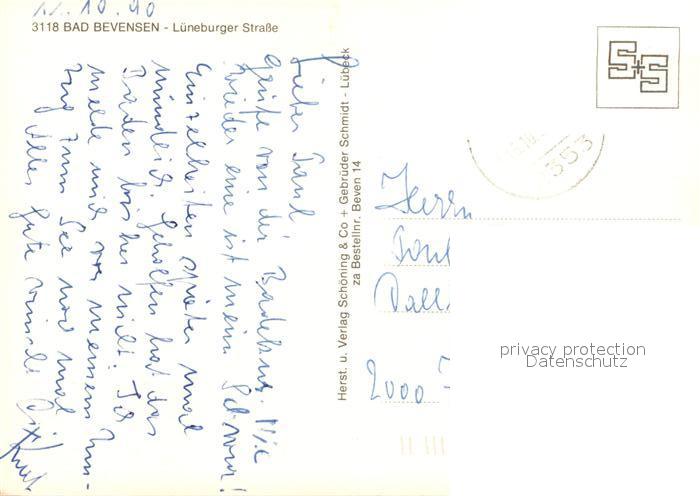 11.10.90
3118 BAD BEVENSEN - Lüneburger Straße
Lieber Paul
Grüße von der Badekur. Nie
wieder eine ist mein Schwur!
Einzelheiten später mal
mündlich. Geholfen hat das
Baden bisher nicht. Ich
melde mich vor meinem Um-
zug zum See noch mal
Alles Gute wünscht
Herst. u. Verlag Schöning & Co + Gebrüder Schmidt - Lübeck
za Bestellnr. Beven 14
S+S
353
Herrn
Paul
2000
privacy protection
Datenschutz